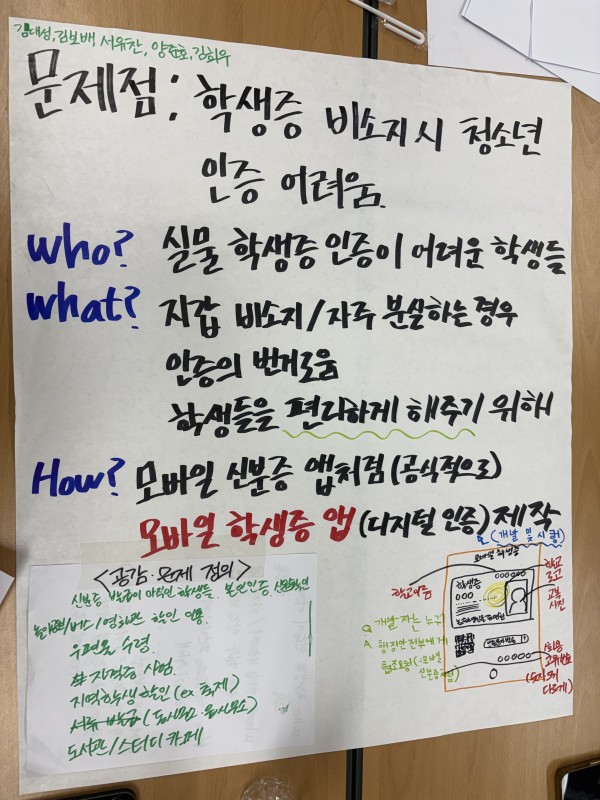 김대성, 김보백 서유찬, 양준호, 김희우
문제점: 학생증 비소지 시 청소년
인증 어려움.
Who? 실물 학생증 인증이 어려운 학생들
What? 지갑 비소지/자주 분실하는 경우
인증의 번거로움
학생들을 편리하게 해주기 위해
How? 모바일 신분증 앱처럼 (공식적으로)
모바일 학생증 앱 (디지털 인증) 제작
(개발 및 시행)
<공감·문제 정의>
신분증 발급이 안된 학생들, 본인인증,
놀이공원/버스/영화관 할인 인증
우편물 수령
자격증 시험
지역학생 할인 (ex 축제)
도서관/스터디 카페
Q 개발자는 누구?
A. 행정안전부에게
협조요청 (모바일
학교이름
학생증
학교
로고
교복
사진
고유번호
다르게)